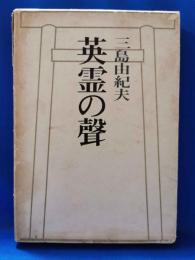 三島由紀夫
英霊の聲